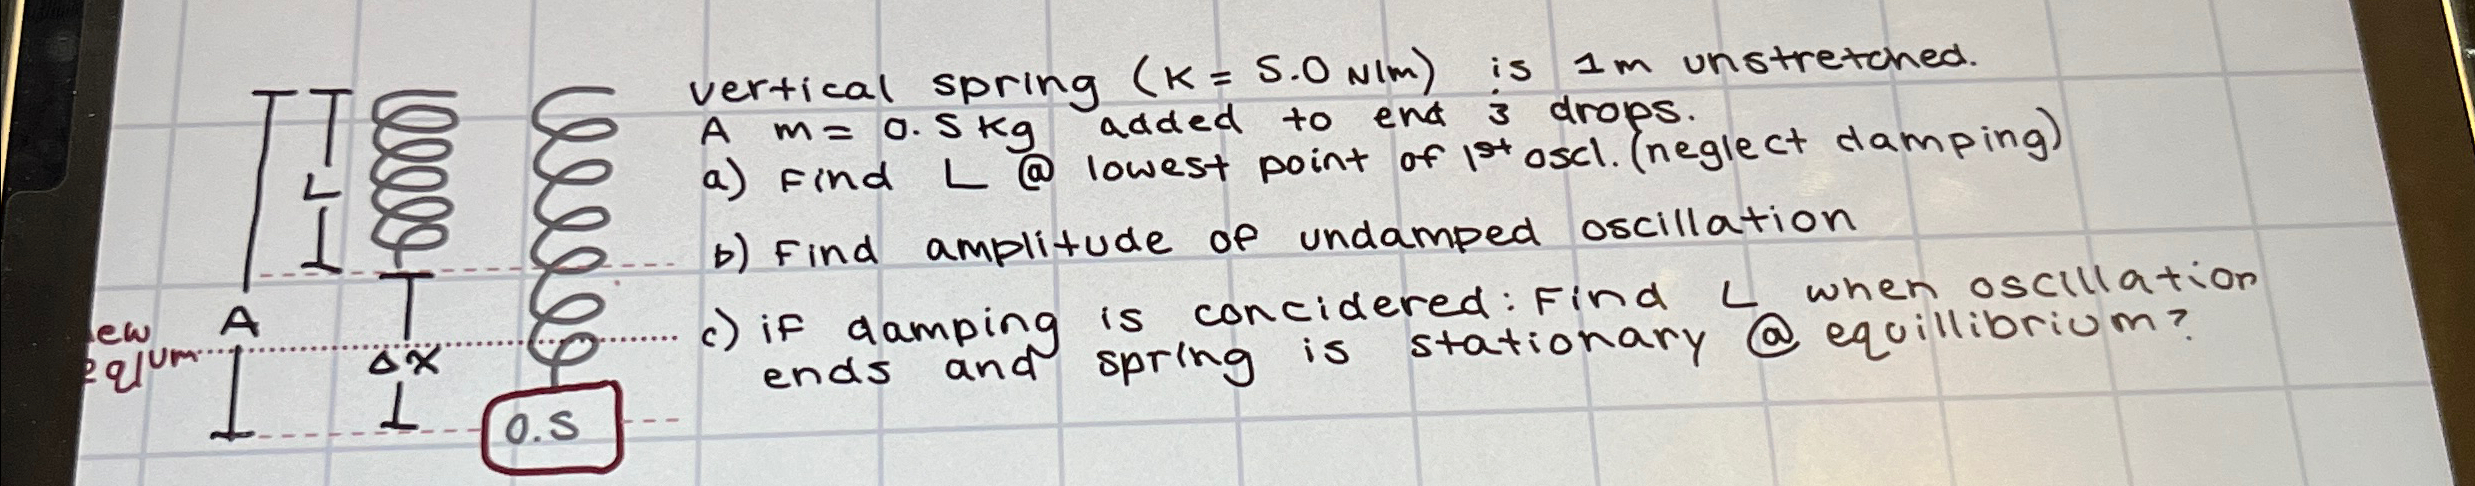 vertical spring (K = 5.0 N/m) is 1m unstretched.
A m = 0.5 Kg added to end & drops.
a) Find L @ lowest point of 1st oscl. (neglect damping)
b) Find amplitude of undamped oscillation
c) if damping is concidered: Find L when oscillation
ends and spring is stationary @ equillibrium?
L
A
ew
eqlum
Δx
0.5